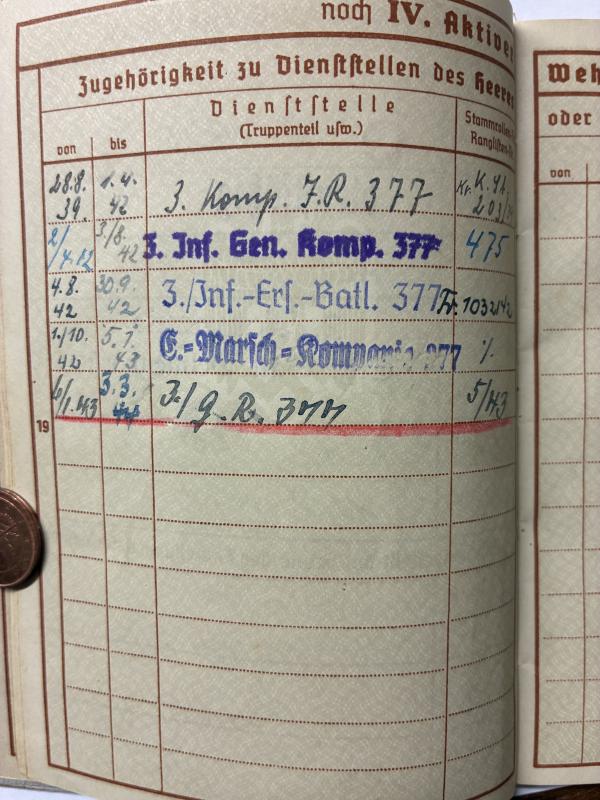 noch IV. Aktiver
Zugehörigkeit zu Dienststellen des Heeres
Dienststelle
(Truppenteil usw.)
Stammrollen-
Ranglisten-
von
bis
28.8. 39. 1.4. 42 3. Komp. J.R. 377 Kr. K. 203/
2/4.42 3/8. 42 3. Inf. Gen. Komp. 377 475
4.8. 42 30.9. 42 3./Inf.-Ers.-Batl. 377 1032/42
1./10. 42 5.1. 43 E.-Marsch-Kompanie 377 ⁒
6/1.43 3.3. 3./G.R. 377 5/43
19
Weh
oder
von